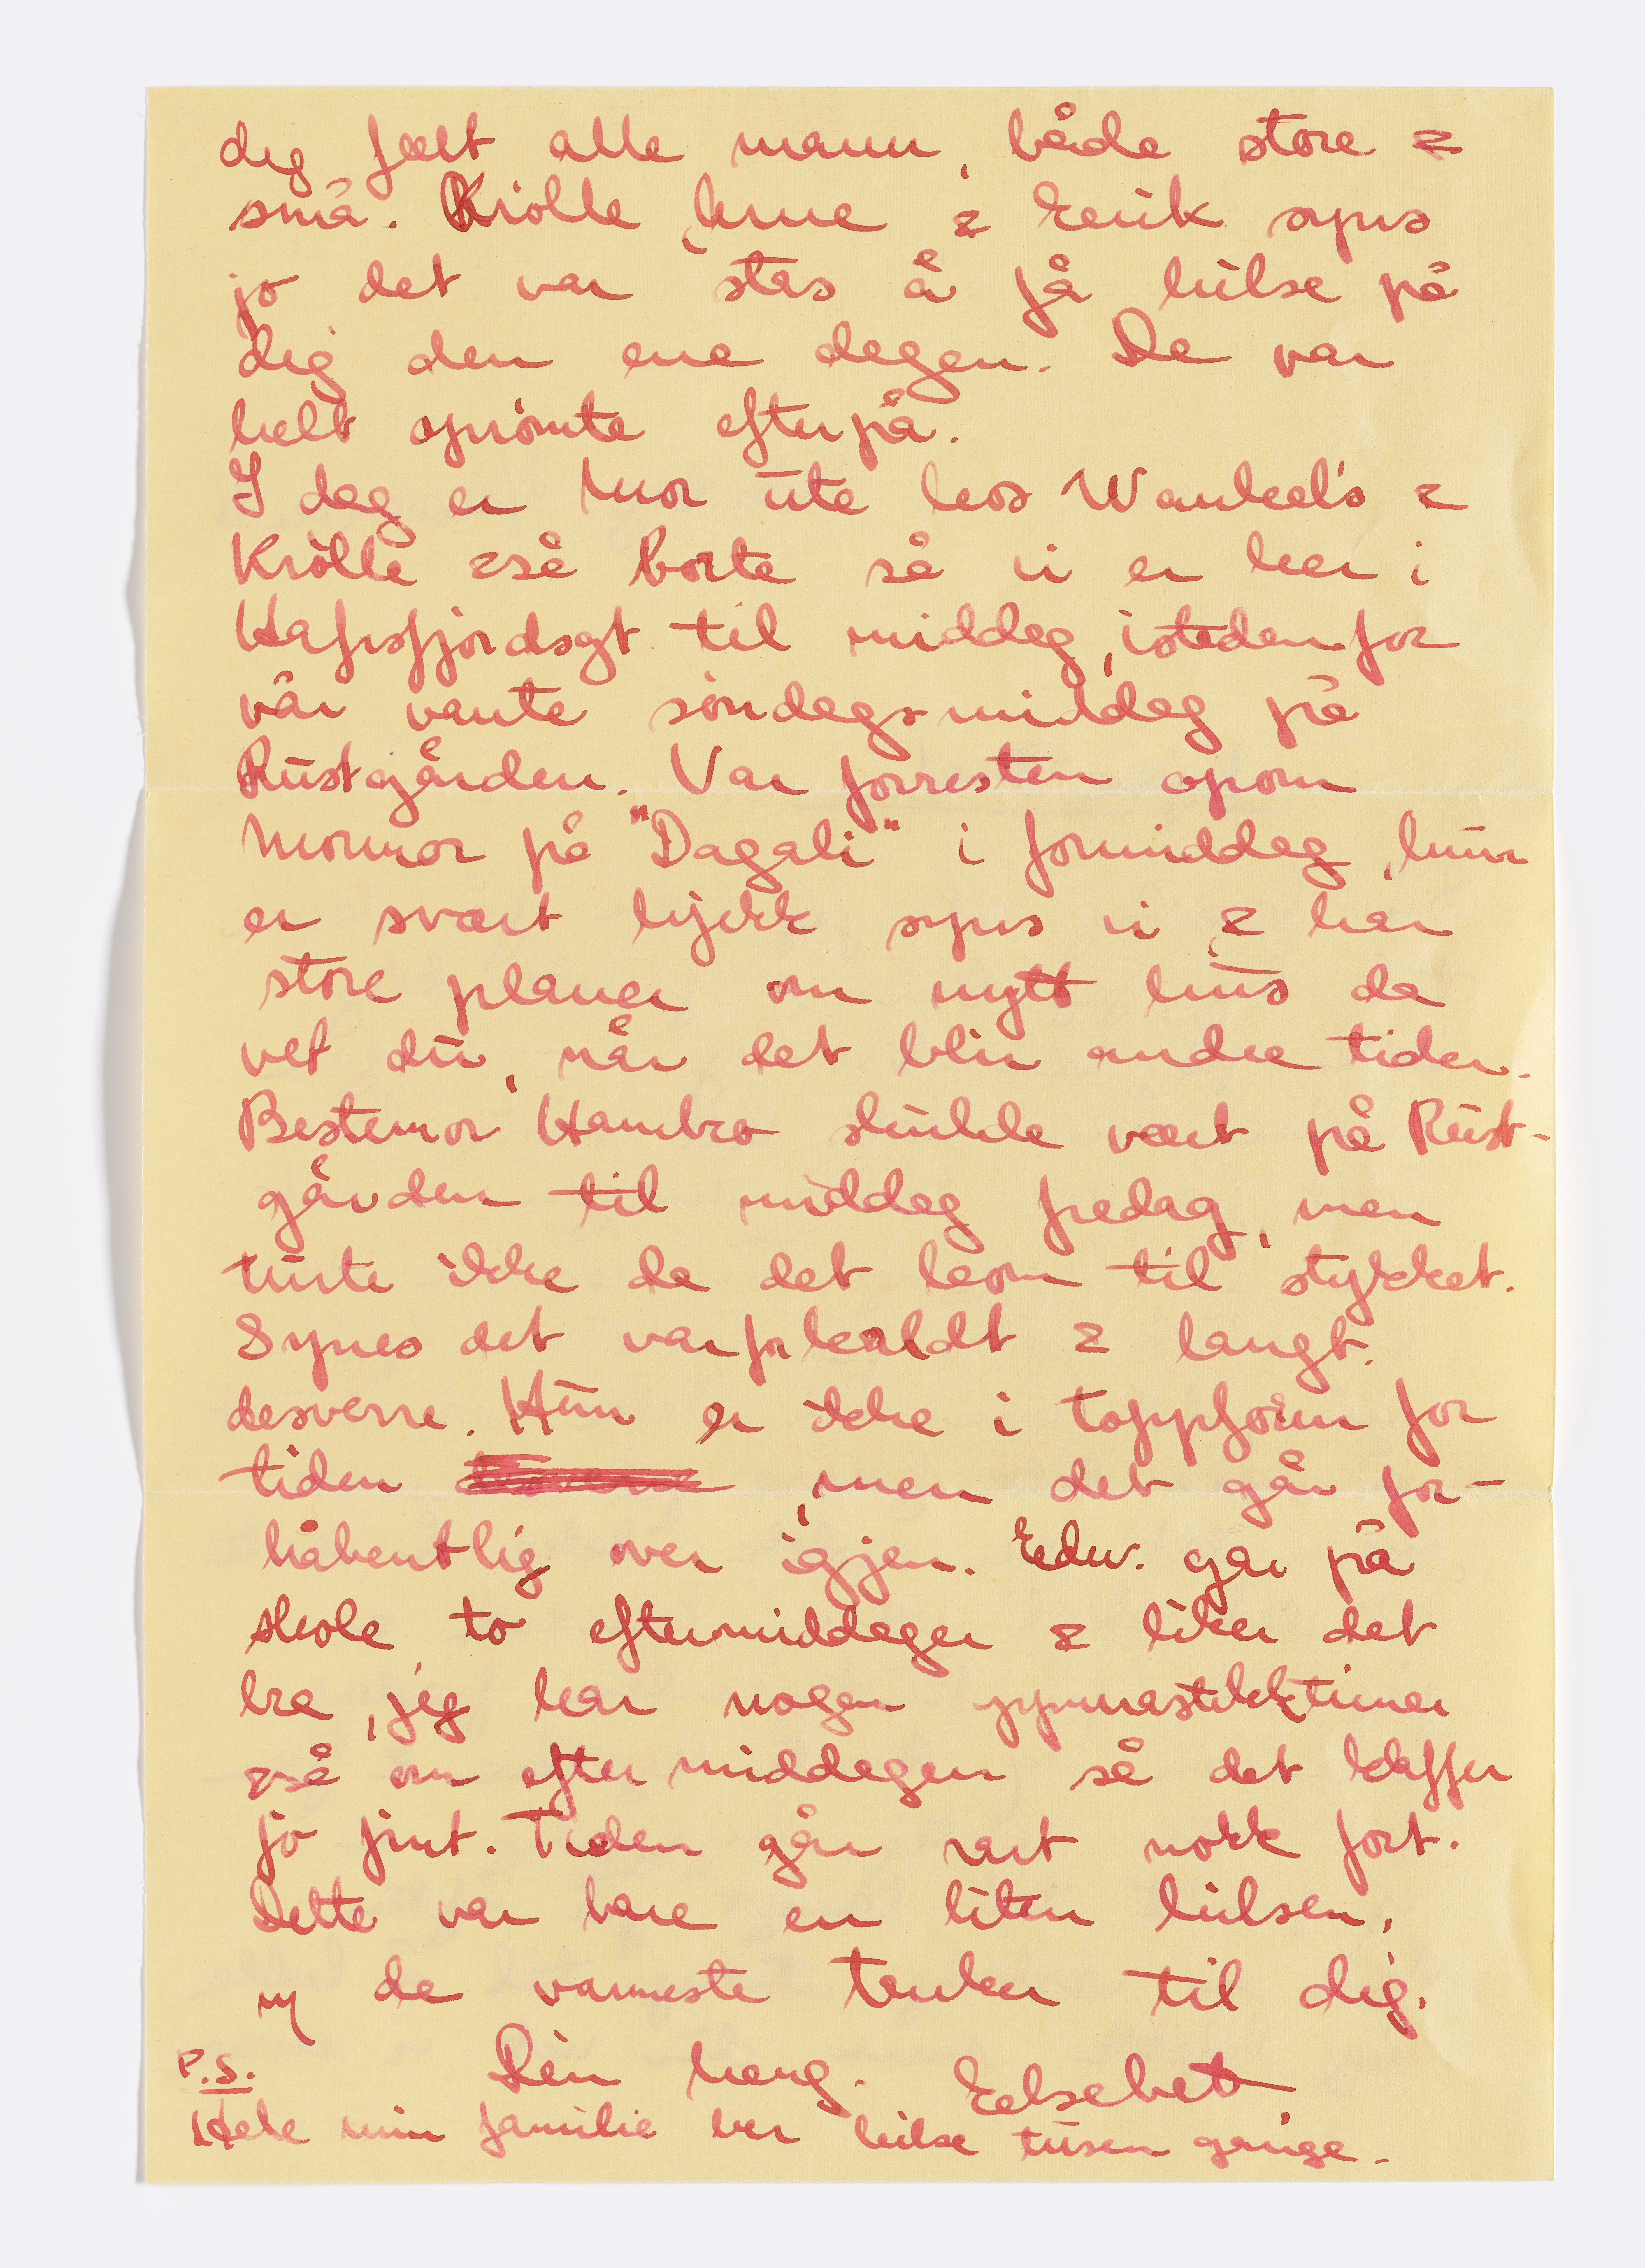 dig fælt alle mann, både store &
små. Krølle, Lme & Eerik syns
jo det var stas å få hilse på
dig den ene dagen. De var
helt oprømte efterpå.
I dag er Mor ute hos Wankel's &
Krølle også borte så vi er her i
Hafrsfjordsgt til middag, istedenfor
vår vante søndagsmiddag på
Rustgården. Var forresten opom
Mormor på "Dagali" i formiddag, hun
er svært kjekk syns vi & har
store planer om nytt hus da
vet du, når det blir andre tider.
Bestemor Hambro skulde vært på Rust-
gården til middag fredag, men
turte ikke da det kom til stykket.
Synes det var for kaldt & langt.
desverre. Hun er ikke i toppform for
tiden, men det går for-
håbentlig over igjen. Edw. går på
skole to eftermiddager & liker det
bra, jeg har nogen gymnastikktimer
også om eftermiddagen så det klaffer
jo fint. Tiden går rart nokk fort.
Dette var bare en liten hilsen,
m de varmeste tanker til dig.
Din heng. Eelsebet
P.S.
Hele min familie ber hilse tusen gange.